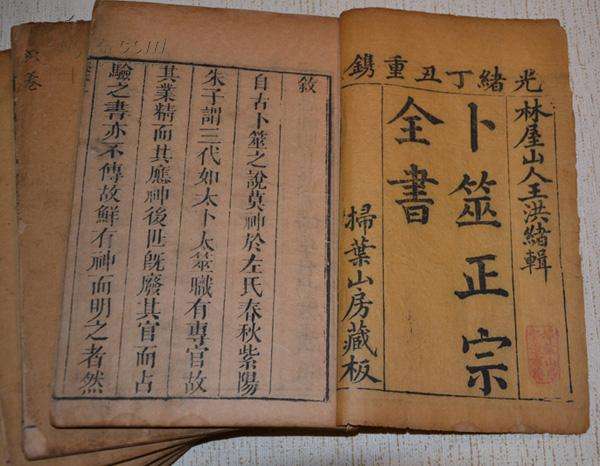 光緒丁丑重鐫
林屋山人王洪緒輯
卜筮正宗
全書
掃葉山房藏板
敘
自古卜筮之說莫神於左氏春秋紫陽
朱子謂三代如太卜太筮職有專官故
其業精而其應神後世既廢其官而占
驗之書亦不傳故鮮有神而明之者然